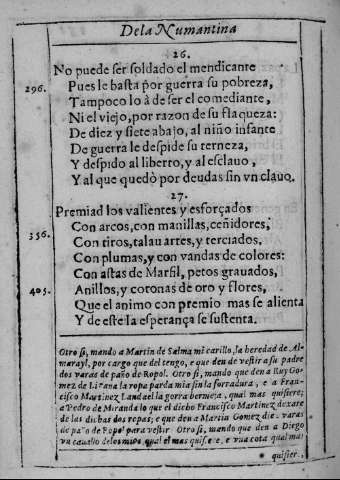 De la Numantina
26.
No puede ser soldado el mendicante
296. Pues le basta por guerra su pobreza,
Tampoco lo à de ser el comediante,
Ni el viejo, por razon de su flaqueza:
De diez y siete abajo, al niño infante
De guerra le despide su terneza,
Y despido al liberto, y al esclauo,
Y al que quedò por deudas sin vn clauo.
27.
Premiad los valientes y esforçados
Con arcos, con manillas, ceñidores,
356. Con tiros, talauartes, y terciados,
Con plumas, y con vandas de colores:
Con astas de Marfil, petos grauados,
405. Anillos, y coronas de oro y flores,
Que el animo con premio mas se alienta
Y de este la esperança se sustenta.
Otro si, mando a Martin de Salma mi carillo, la heredad de Al-
marayl, por cargo que del tengo, e que den de vestir a su padre
dos varas de paño de Ropol. Otro si, mando que den a Ruy Go-
mez de Liçana la ropa parda mia sin la forradura, e a Fran-
cisco Martinez Landa el la gorra berneza, qual mas quisiere;
a Pedro de Miranda lo que el dicho Francisco Martinez dexare
de las dichas dos ropas; e que den a Martin Gomez die. varas
de paño de Ropol para vestir. Otro si, mando que den a Diego
vn cauallo de los mios, qual el mas quis.e.e, e vna cota qual mas
quisier,